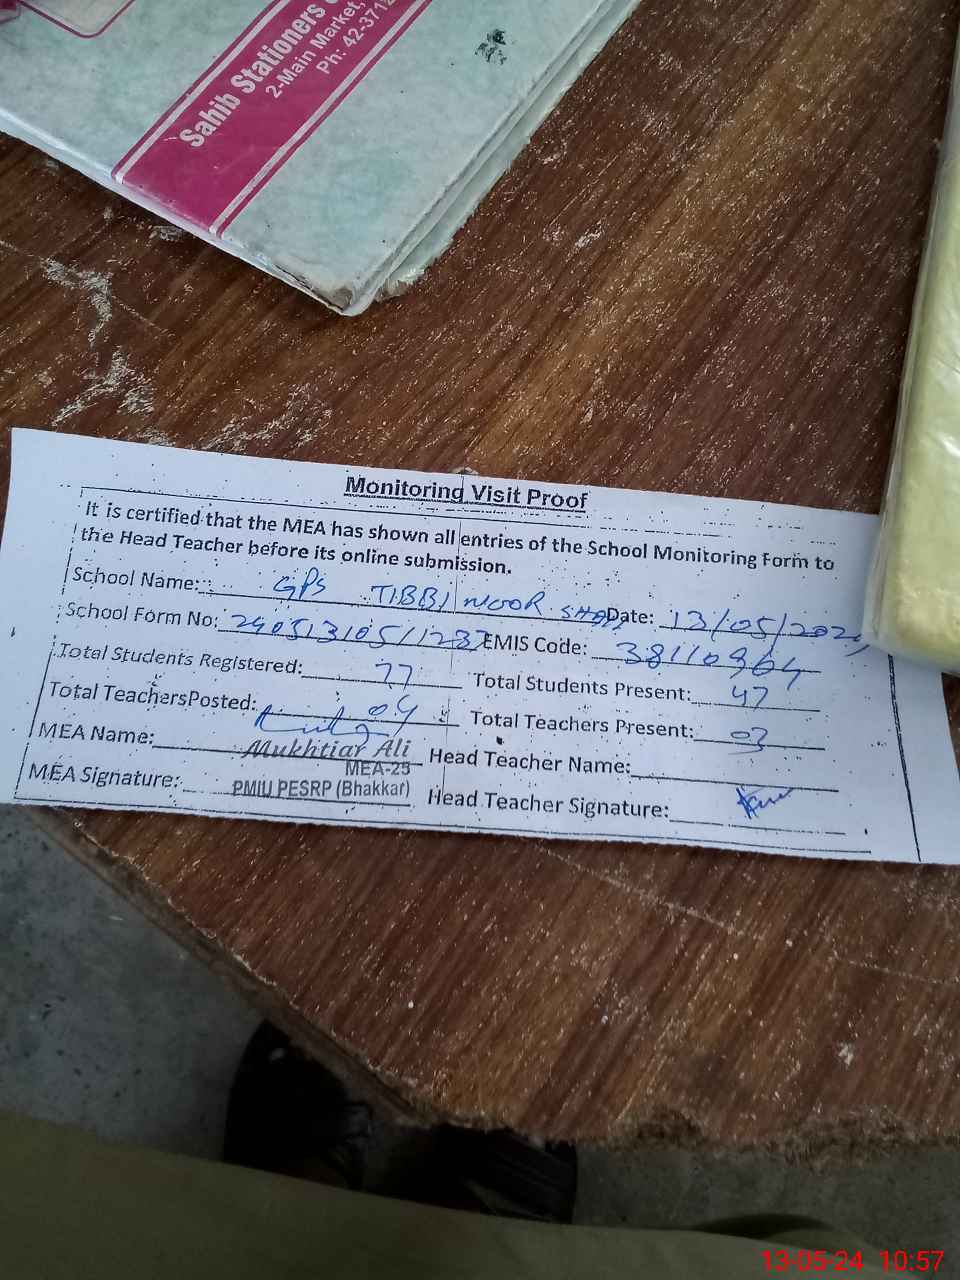 Sahib Stationers
2-Main Market,
Ph: 42-3712
Monitoring Visit Proof
It is certified that the MEA has shown all entries of the School Monitoring Form to
the Head Teacher before its online submission.
School Name: GPS TIBBI NOOR SHAH Date: 13/05/2024
School Form No: 2405131051123 EMIS Code: 38110364
Total Students Registered: 77 Total Students Present: 47
Total TeachersPosted: 04 Total Teachers Present: 03
MEA Name: Mukhtiar Ali Head Teacher Name:
MEA-25
MEA Signature: PMIU PESRP (Bhakkar) Head Teacher Signature:
13-05-24 10:57